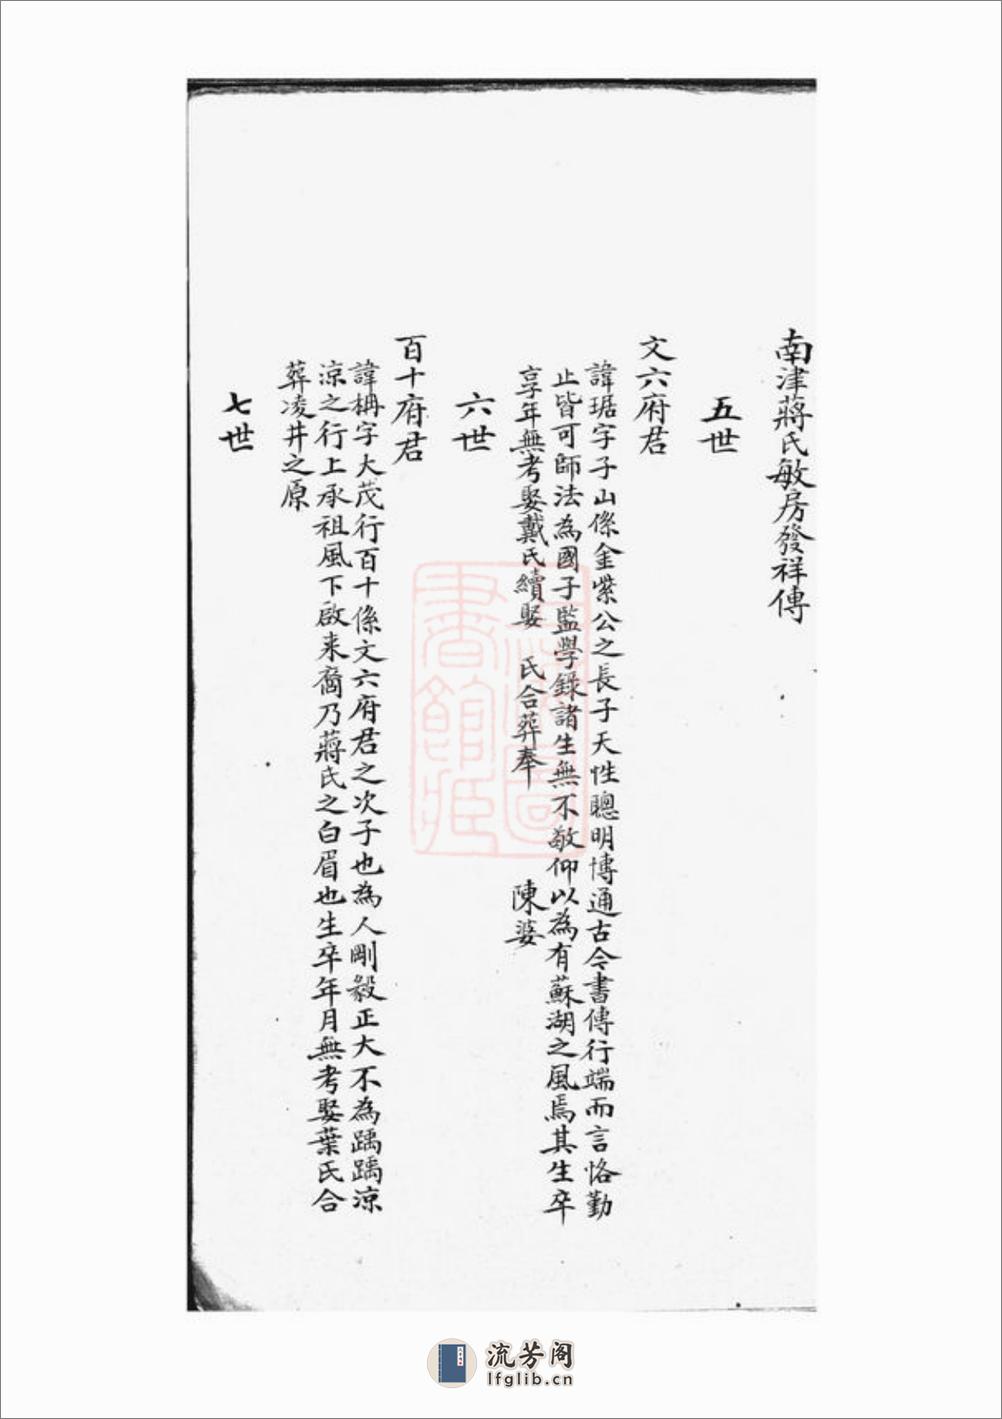 南津蔣氏敏房發祥傳
五世
文六府君
諱琚字子山係金紫公之長子天性聰明博通古今書傳行端而言恪勤
止皆可師法為國子監學錄諸生無不敬仰以為有蘇湖之風焉其生卒
享年無考娶戴氏續娶 氏合葬奉 陳婆
六世
百十府君
諱栴字大茂行百十係文六府君之次子也為人剛毅正大不為踽踽涼
涼之行上承祖風下啟来裔乃蔣氏之白眉也生卒年月無考娶葉氏合
葬凌井之原
七世
流芳阁
lfglib.cn